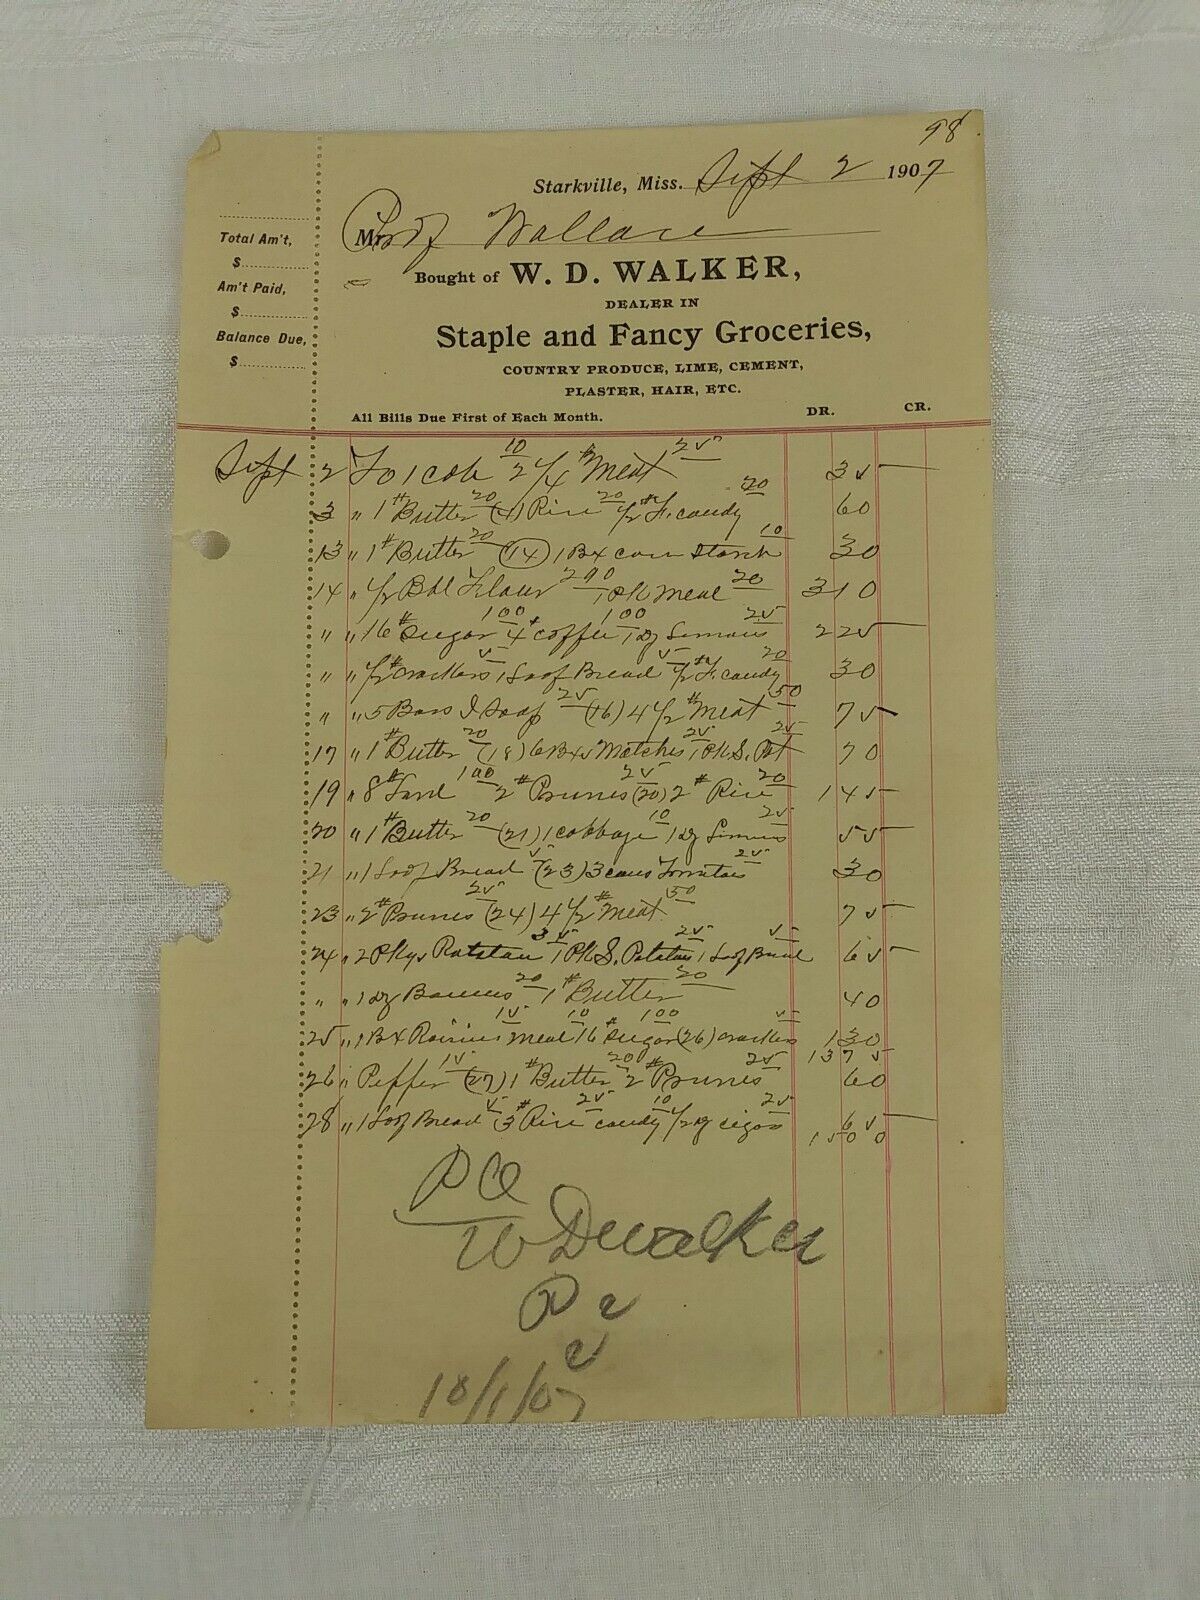 98
Starkville, Miss. Sept 2 1907
Mr Prof Wallace
Total Am't,
$
Am't Paid,
$
Balance Due,
$
Bought of W. D. WALKER,
DEALER IN
Staple and Fancy Groceries,
COUNTRY PRODUCE, LIME, CEMENT,
PLASTER, HAIR, ETC.
All Bills Due First of Each Month. DR. CR.
Sept 2 To 10 2 1/4 # Meat 25 35
3 " 1 # Butter 20 (4) Rice 20 1/2 # F. candy 20 60
13 " 1 # Butter 20 (14) 1 Bx corn Starch 10 30
14 " 1/2 Bbl Flour 290 1 pk meal 20 310
" " 16 # Sugar 100 4 # coffee 100 1 dz Lemons 25 225
" " 1/2 # crackers 5 1 Loaf Bread 5 1/2 # F. candy 20 30
" " 5 Bars I Soap 25 (16) 4 1/2 # Meat 50 75
17 " 1 # Butter 20 (18) 6 Bxs Matches 25 1 PK S. Pot 25 70
19 " 8 # Lard 100 2 # Prunes 25 (20) 2 # Rice 20 145
20 " 1 # Butter 20 (21) 1 cabbage 10 1 dz Lemons 25 55
21 " 1 Loaf Bread 5 (23) 3 cans Tomatoes 25 30
23 " 2 # Prunes 25 (24) 4 1/2 # Meat 50 75
24 " 2 Pkgs 35 1 PK S. Potatoes 25 1 Loaf Bread 5 65
" " 1 dz 20 1 # Butter 20 40
25 " 1 Bx Raisins 15 Meal 10 16 # Sugar 100 (26) crackers 5 130
1375
26 " Pepper 15 (27) 1 # Butter 20 2 # Prunes 25 60
28 " 1 Loaf Bread 5 3 # Rice 25 candy 10 1/2 dz cigars 25 65
1500
W D Walker
10/1/07